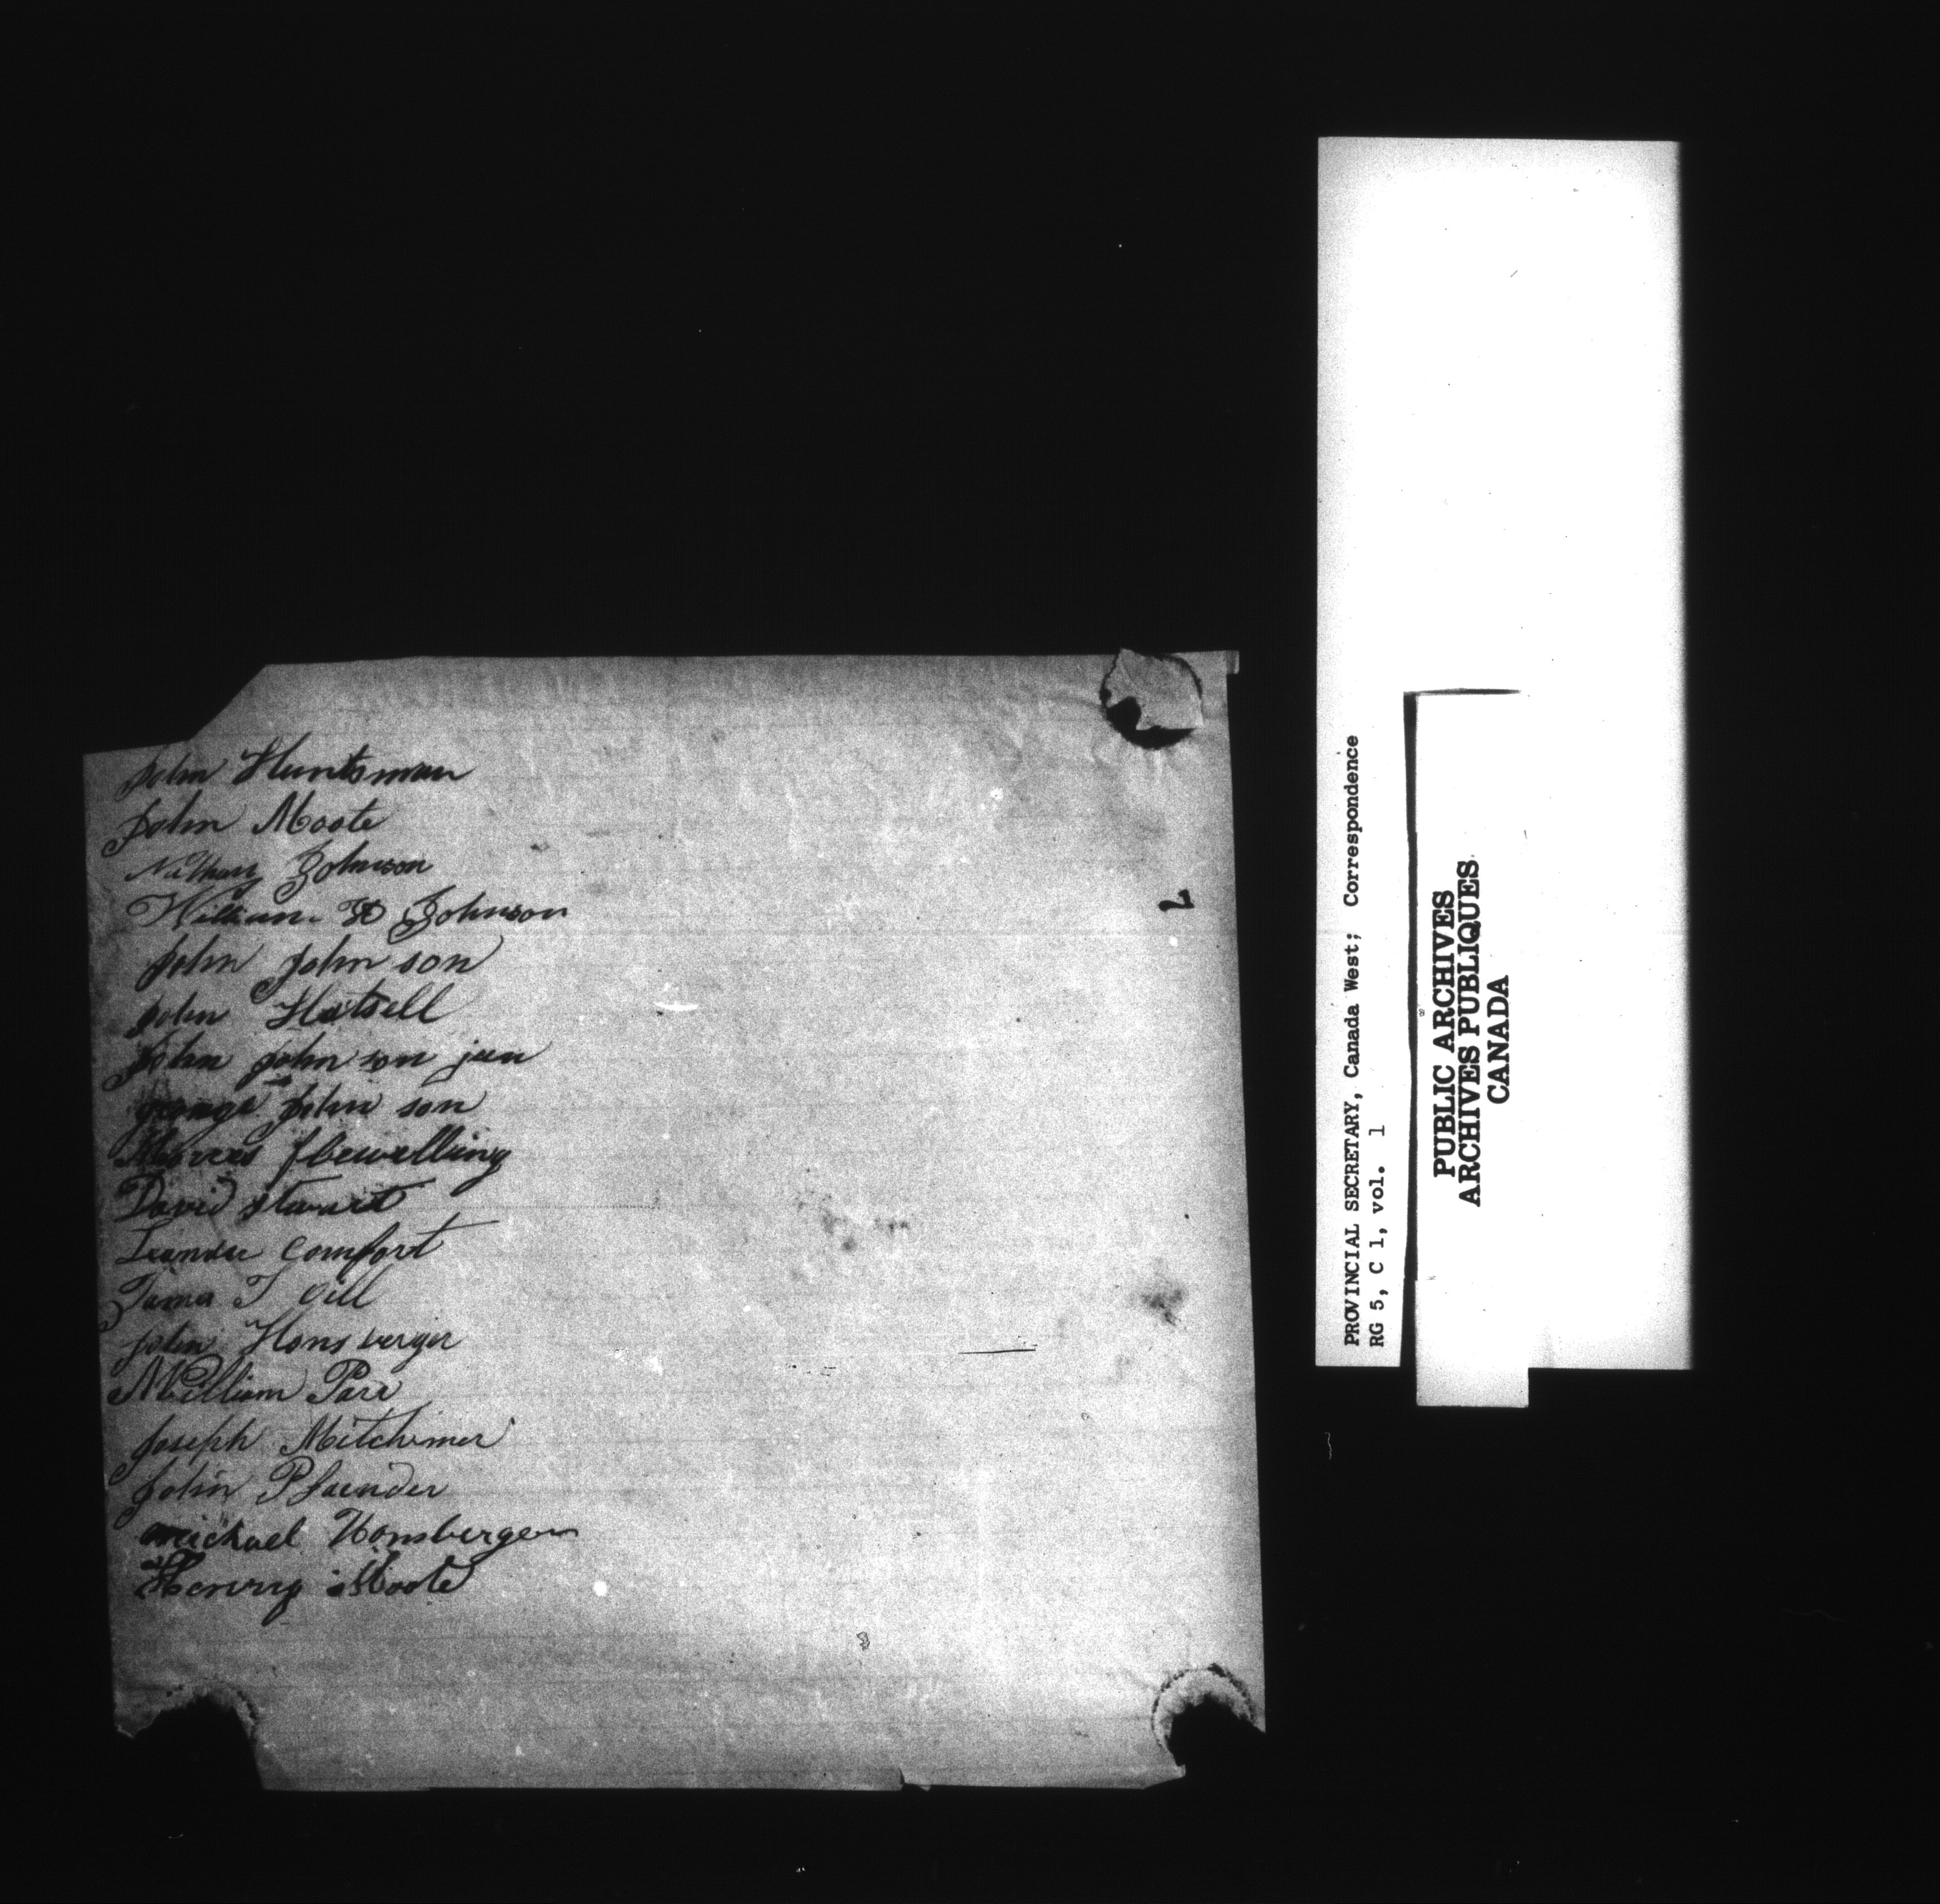 John Huntsman
John Moote
Nathan Johnson
William H Johnson
John John son
John Hutsell
John john son jun
george john son
flewelling
David stewart
Leander Comfort
James T Gill
John Hons berger
William Parr
Joseph Mitchener
John Pfaender
michael Honsberger
Henry Moote
7
PROVINCIAL SECRETARY, Canada West; Correspondence
RG 5, C 1, vol. 1
PUBLIC ARCHIVES
ARCHIVES PUBLIQUES
CANADA